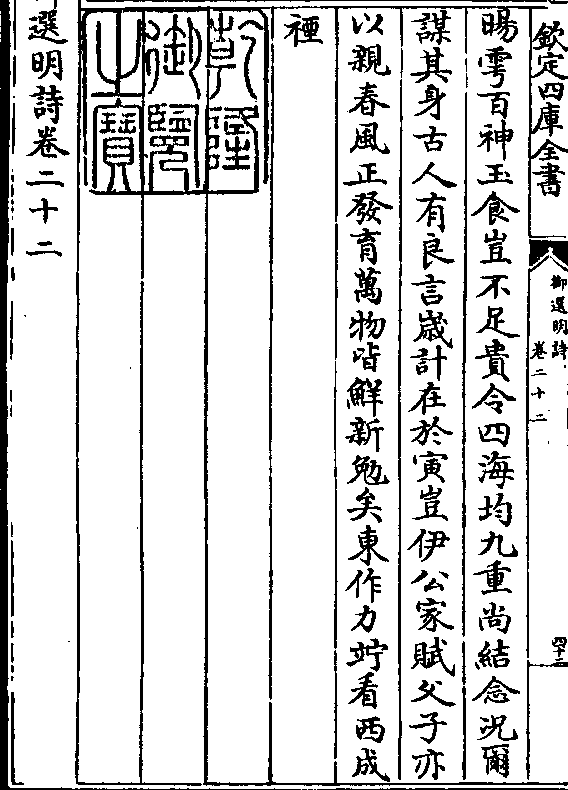 欽定四庫全書
御選明詩
卷二十二
四十二
暘雩百神玉食豈不足貴令四海均九重尚結念況爾
謀其身古人有良言嵗計在於寅豈伊公家賦父子亦
以親春風正發育萬物皆鮮新勉矣東作力竚看西成
禋
乾隆御覽之寶
選明詩卷二十二